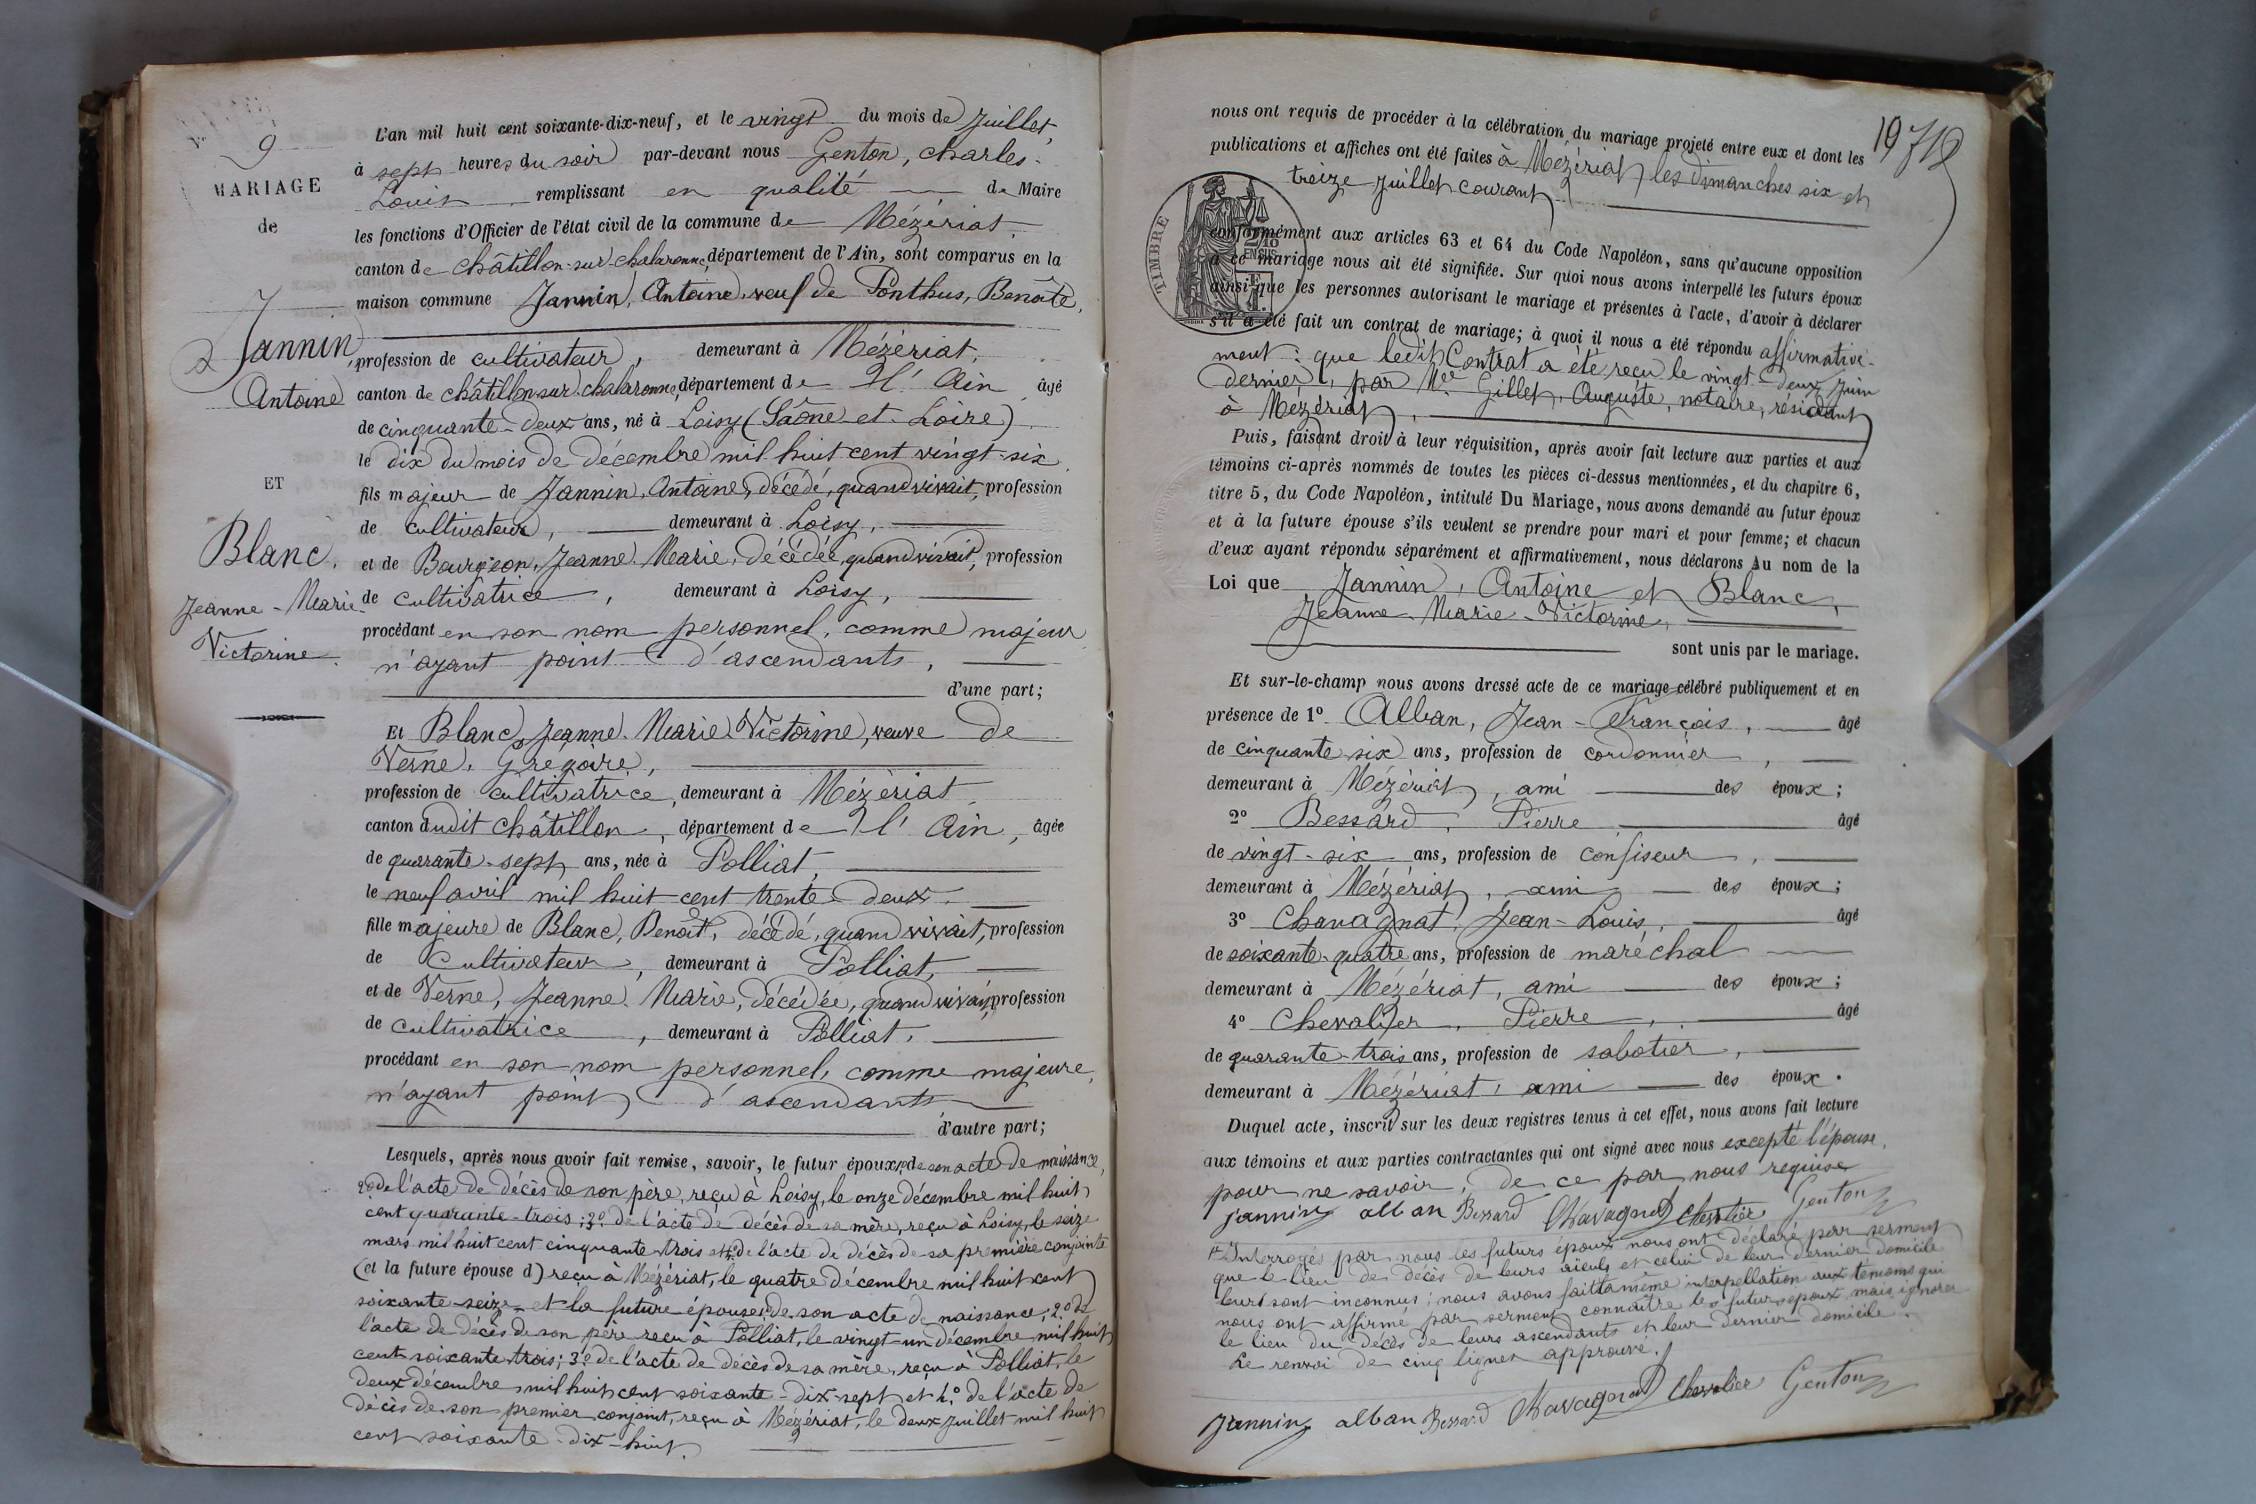 9
MARIAGE
de
Jannin,
Antoine
ET
Blanc,
Jeanne-Marie-
Victorine.
L'an mil huit cent soixante-dix-neuf, et le vingt du mois de Juillet,
à sept heures du soir par-devant nous Genton, Charles-
Louis remplissant en qualité de Maire
les fonctions d'Officier de l'état civil de la commune de Mézériat,
canton de Châtillon-sur-Chalaronne, département de l'Ain, sont comparus en la
maison commune Jannin, Antoine, veuf de Ponthus, Benoîte,
profession de cultivateur, demeurant à Mézériat,
canton de Châtillon-sur-Chalaronne, département de l'Ain âgé
de cinquante-deux ans, né à Loisy (Saône-et-Loire)
le dix du mois de décembre mil huit cent vingt-six
fils majeur de Jannin, Antoine, décédé, quand vivait, profession
de cultivateur, demeurant à Loisy,
et de Bourgeon, Jeanne-Marie, décédée, quand vivait, profession
de cultivatrice, demeurant à Loisy,
procédant en son nom personnel, comme majeur
n'ayant point d'ascendants,
d'une part;
Et Blanc, Jeanne-Marie-Victorine, veuve de
Verne, Grégoire,
profession de cultivatrice, demeurant à Mézériat
canton dudit Châtillon, département de l'Ain, âgée
de quarante-sept ans, née à Polliat,
le neuf avril mil huit cent trente-deux.
fille majeure de Blanc, Benoît, décédé, quand vivait, profession
de Cultivateur, demeurant à Polliat,
et de Verne, Jeanne-Marie, décédée, quand vivait, profession
de cultivatrice, demeurant à Polliat,
procédant en son nom personnel, comme majeure,
n'ayant point d'ascendants
d'autre part;
Lesquels, après nous avoir fait remise, savoir, le futur époux, 1º de son acte de naissance,
2º de l'acte de décès de son père, reçu à Loisy, le onze décembre mil huit
cent quarante-trois; 3º de l'acte de décès de sa mère, reçu à Loisy, le seize
mars mil huit cent cinquante-trois et 4º de l'acte de décès de sa première conjointe
(et la future épouse d) reçu à Mézériat, le quatre décembre mil huit cent
soixante-seize et la future épouse, 1º de son acte de naissance; 2º de
l'acte de décès de son père reçu à Polliat, le vingt-un décembre mil huit
cent soixante-trois; 3º de l'acte de décès de sa mère, reçu à Polliat, le
deux décembre mil huit cent soixante-dix-sept et 4º de l'acte de
décès de son premier conjoint, reçu à Mézériat, le deux Juillet mil huit
cent soixante-dix-huit.
19
nous ont requis de procéder à la célébration du mariage projeté entre eux et dont les
publications et affiches ont été faites à Mézériat les dimanches six et
treize Juillet courant
TIMBRE
conformément aux articles 63 et 64 du Code Napoléon, sans qu'aucune opposition
à ce mariage nous ait été signifiée. Sur quoi nous avons interpellé les futurs époux
ainsi que les personnes autorisant le mariage et présentes à l'acte, d'avoir à déclarer
s'il a été fait un contrat de mariage; à quoi il nous a été répondu affirmative-
ment: que ledit Contrat a été reçu le vingt-deux Juin
dernier, par Me Gillet, Auguste, notaire, résidant
à Mézériat,
Puis, faisant droit à leur réquisition, après avoir fait lecture aux parties et aux
témoins ci-après nommés de toutes les pièces ci-dessus mentionnées, et du chapitre 6,
titre 5, du Code Napoléon, intitulé Du Mariage, nous avons demandé au futur époux
et à la future épouse s'ils veulent se prendre pour mari et pour femme; et chacun
d'eux ayant répondu séparément et affirmativement, nous déclarons Au nom de la
Loi que Jannin, Antoine et Blanc,
Jeanne-Marie-Victorine,
sont unis par le mariage.
Et sur-le-champ nous avons dressé acte de ce mariage célébré publiquement et en
présence de 1º Alban, Jean-François, âgé
de cinquante-six ans, profession de cordonnier,
demeurant à Mézériat, ami des époux;
2º Bessard, Pierre âgé
de vingt-six ans, profession de confiseur,
demeurant à Mézériat, ami des époux;
3º Chavagnat, Jean-Louis, âgé
de soixante-quatre ans, profession de maréchal
demeurant à Mézériat, ami des époux;
4º Chevalier, Pierre, âgé
de quarante-trois ans, profession de sabotier,
demeurant à Mézériat, ami des époux.
Duquel acte, inscrit sur les deux registres tenus à cet effet, nous avons fait lecture
aux témoins et aux parties contractantes qui ont signé avec nous excepté l'épouse,
pour ne savoir, de ce par nous requise
jannin alban Bessard Chavagnat Chevalier Genton
Interrogés par nous les futurs époux nous ont déclaré par serment
que le lieu de décès de leurs aïeuls et celui de leur dernier domicile
leur sont inconnus; nous avons fait la même interpellation aux témoins qui
nous ont affirmé par serment connaître les futurs époux mais ignorer
le lieu du décès de leurs ascendants et leur dernier domicile.
Le renvoi de cinq lignes approuvé.
jannin alban Bessard Chavagnat Chevalier Genton